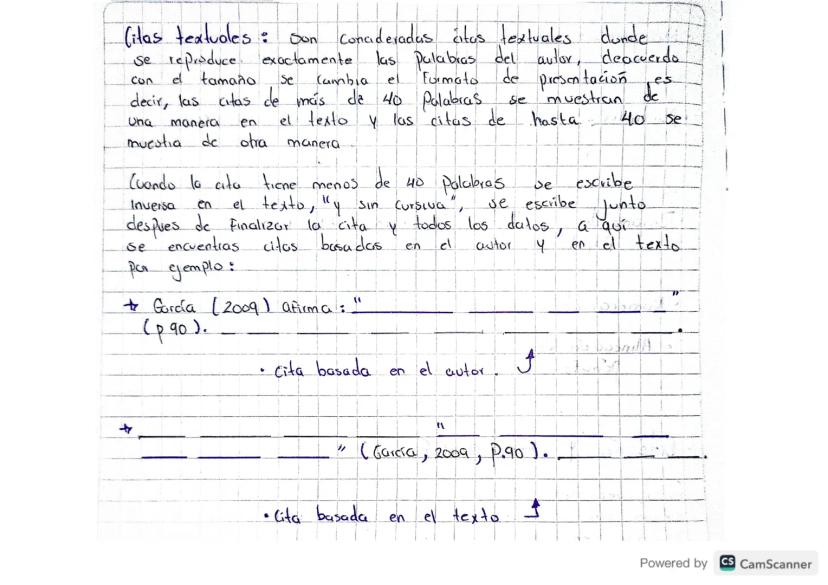 Citas textuales : son consideradas citas textuales donde
se reproduce exactamente las palabras del autor, deacuerdo
con el tamaño se cambia el formato de presentación es
decir, las citas de más de 40 palabras se muestran de
una manera en el texto y las citas de hasta 40 se
muestra de otra manera.
Cuando la cita tiene menos de 40 palabras se escribe
inversa en el texto, "y sin cursiva", se escribe junto
despues de finalizar la cita y todos los datos, a qui
se encuentras citas basadas en el autor y en el texto
por ejemplo :
García (2009) afirma : " "
(p 90).
• Cita basada en el autor.
"
" (García, 2009, P.90).
• Cita basada en el texto
Powered by CS CamScanner